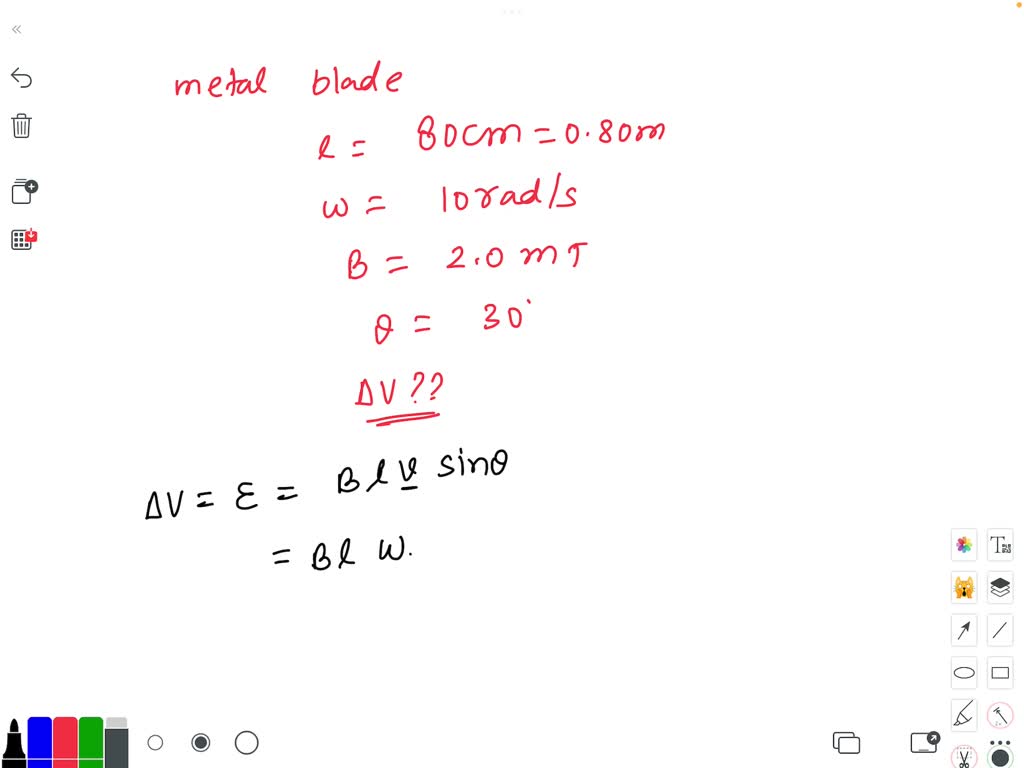 metal blade
l = 80cm = 0.80m
w = 10 rad/s
B = 2.0 mT
θ = 30°
ΔV ??
ΔV = ε = B l v sinθ
= B l w.